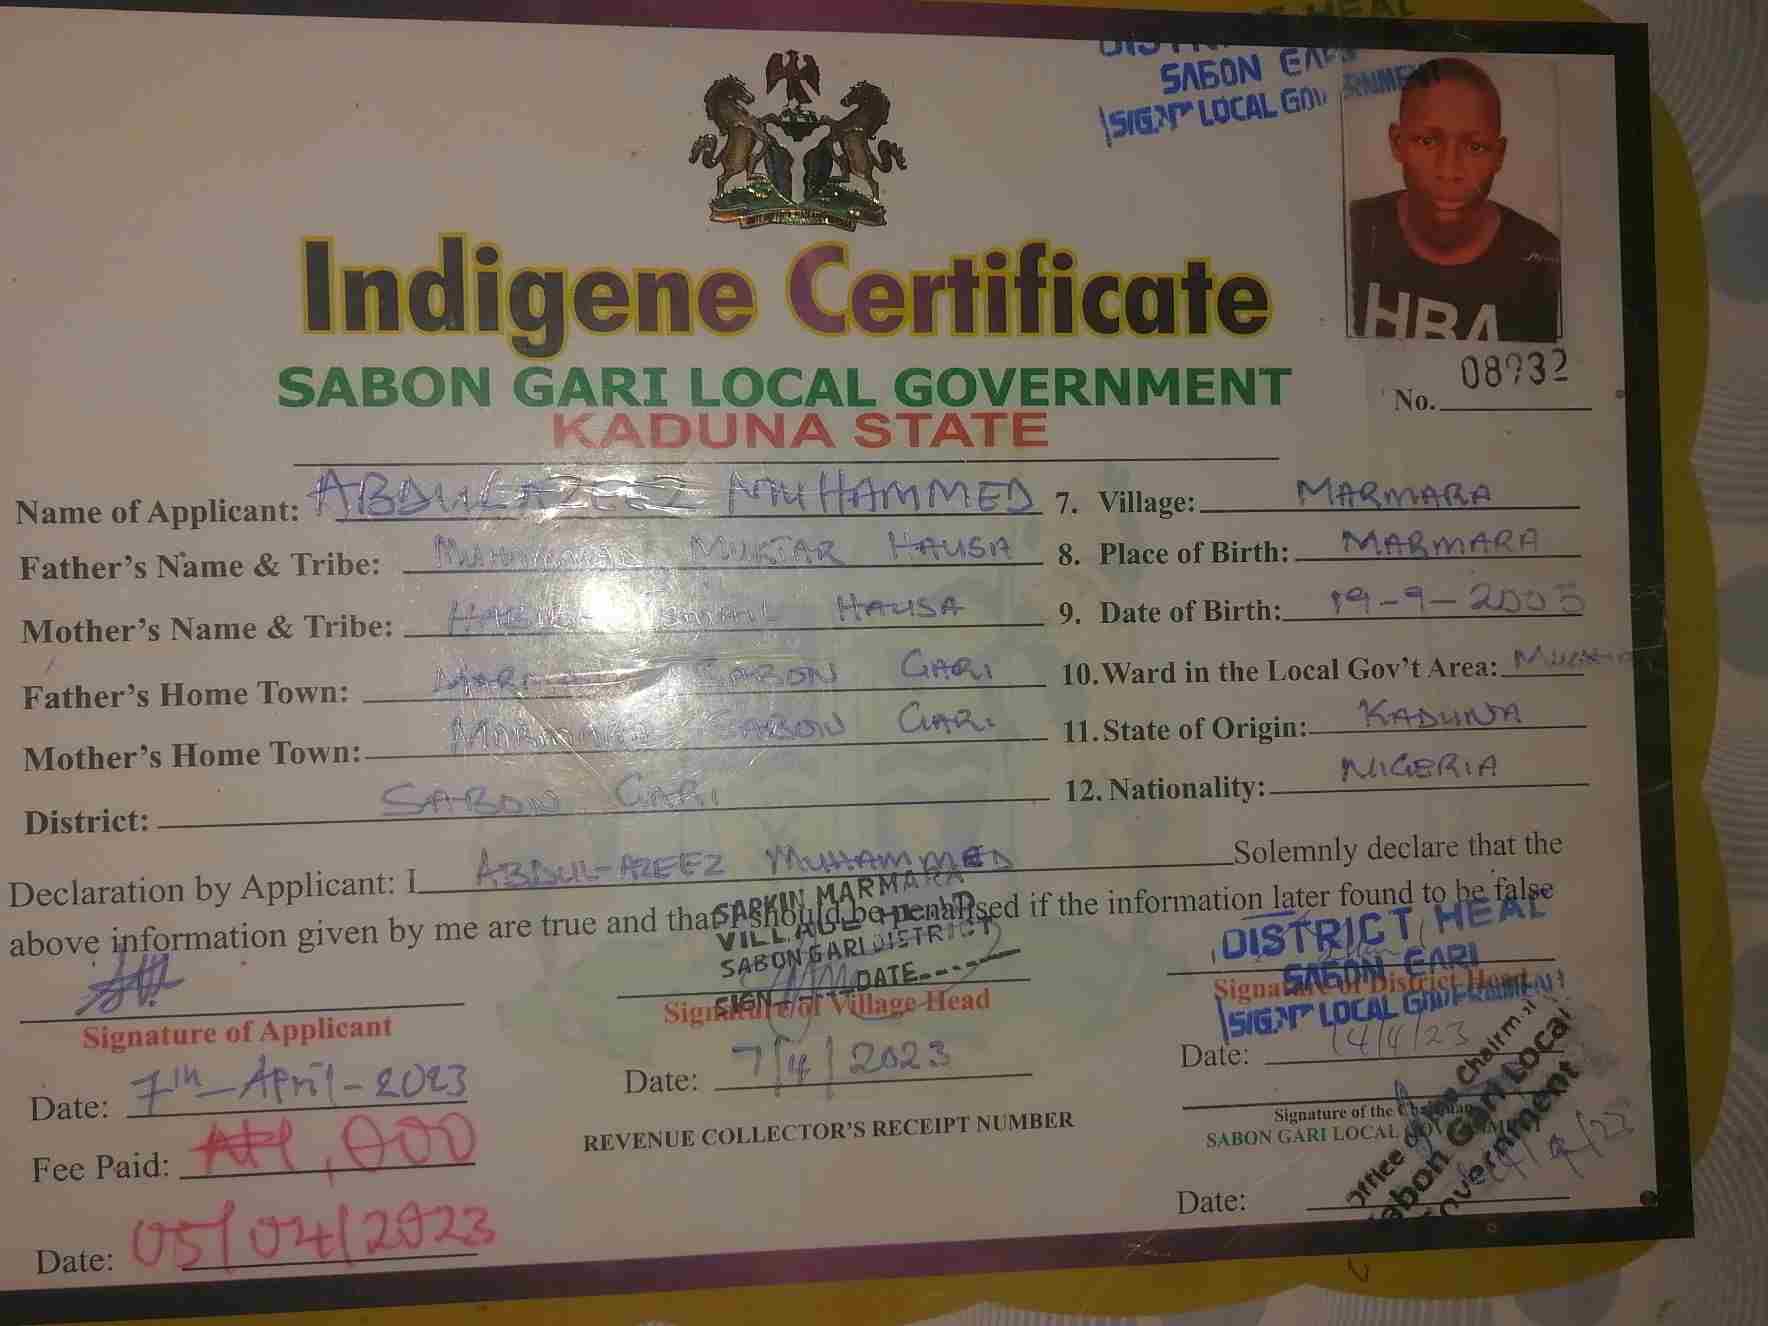 SABON GARI
SIGN LOCAL GOVERNMENT
HBA
Indigene Certificate
SABON GARI LOCAL GOVERNMENT
KADUNA STATE
No. 08932
Name of Applicant: ABDULAZEEZ MUHAMMED
Father's Name & Tribe: MUKTAR HAUSA
Mother's Name & Tribe: HAUSA
Father's Home Town: SABON GARI
Mother's Home Town: MARMARA SABON GARI
District: SABON GARI
7. Village: MARMARA
8. Place of Birth: MARMARA
9. Date of Birth: 19-9-2005
10. Ward in the Local Gov't Area:
11. State of Origin: KADUNA
12. Nationality: NIGERIA
Declaration by Applicant: I ABDUL-AZEEZ MUHAMMED Solemnly declare that the
above information given by me are true and that I should be penalised if the information later found to be false
SARKIN MARMARA
VILLAGE HEAD
SABON GARI DISTRICT
SIGN DATE
DISTRICT HEAD
SABON GARI
SIGN LOCAL GOVERNMENT
Signature of Applicant
Signature of Village Head
Signature of District Head
Date: 7th-April-2023
Date: 7/4/2023
Date: 14/4/23
Fee Paid: ,000
Date: 05/04/2023
REVENUE COLLECTOR'S RECEIPT NUMBER
Signature of the Chairman
SABON GARI LOCAL GOVERNMENT
Date:
Office of the Chairman
Sabon Gari Local
Government